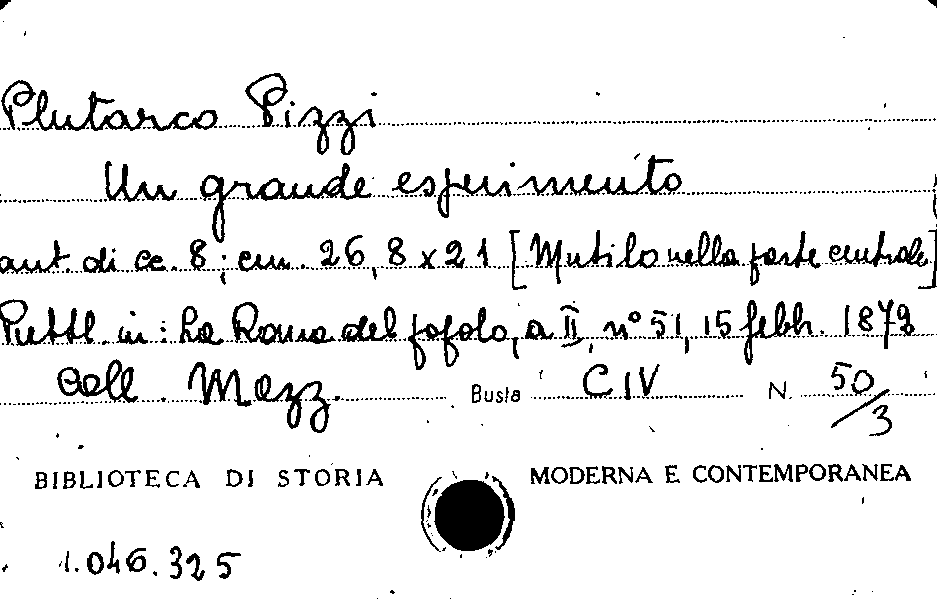 Plutarco Pizzi
Un grande esperimento
aut. di cc. 8; cm. 26,8 x 21 [Mutilo nella parte centrale]
Pubbl. in: La Roma del popolo, a II, n° 51, 15 febb. 1872
Coll. Mazz. Busta CIV N. 50/3
BIBLIOTECA DI STORIA MODERNA E CONTEMPORANEA
1.046.325